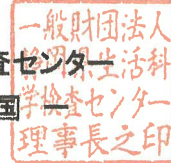 一般財団法人
静岡県生活科
学検査センター
理事長之印
査センター
国 一